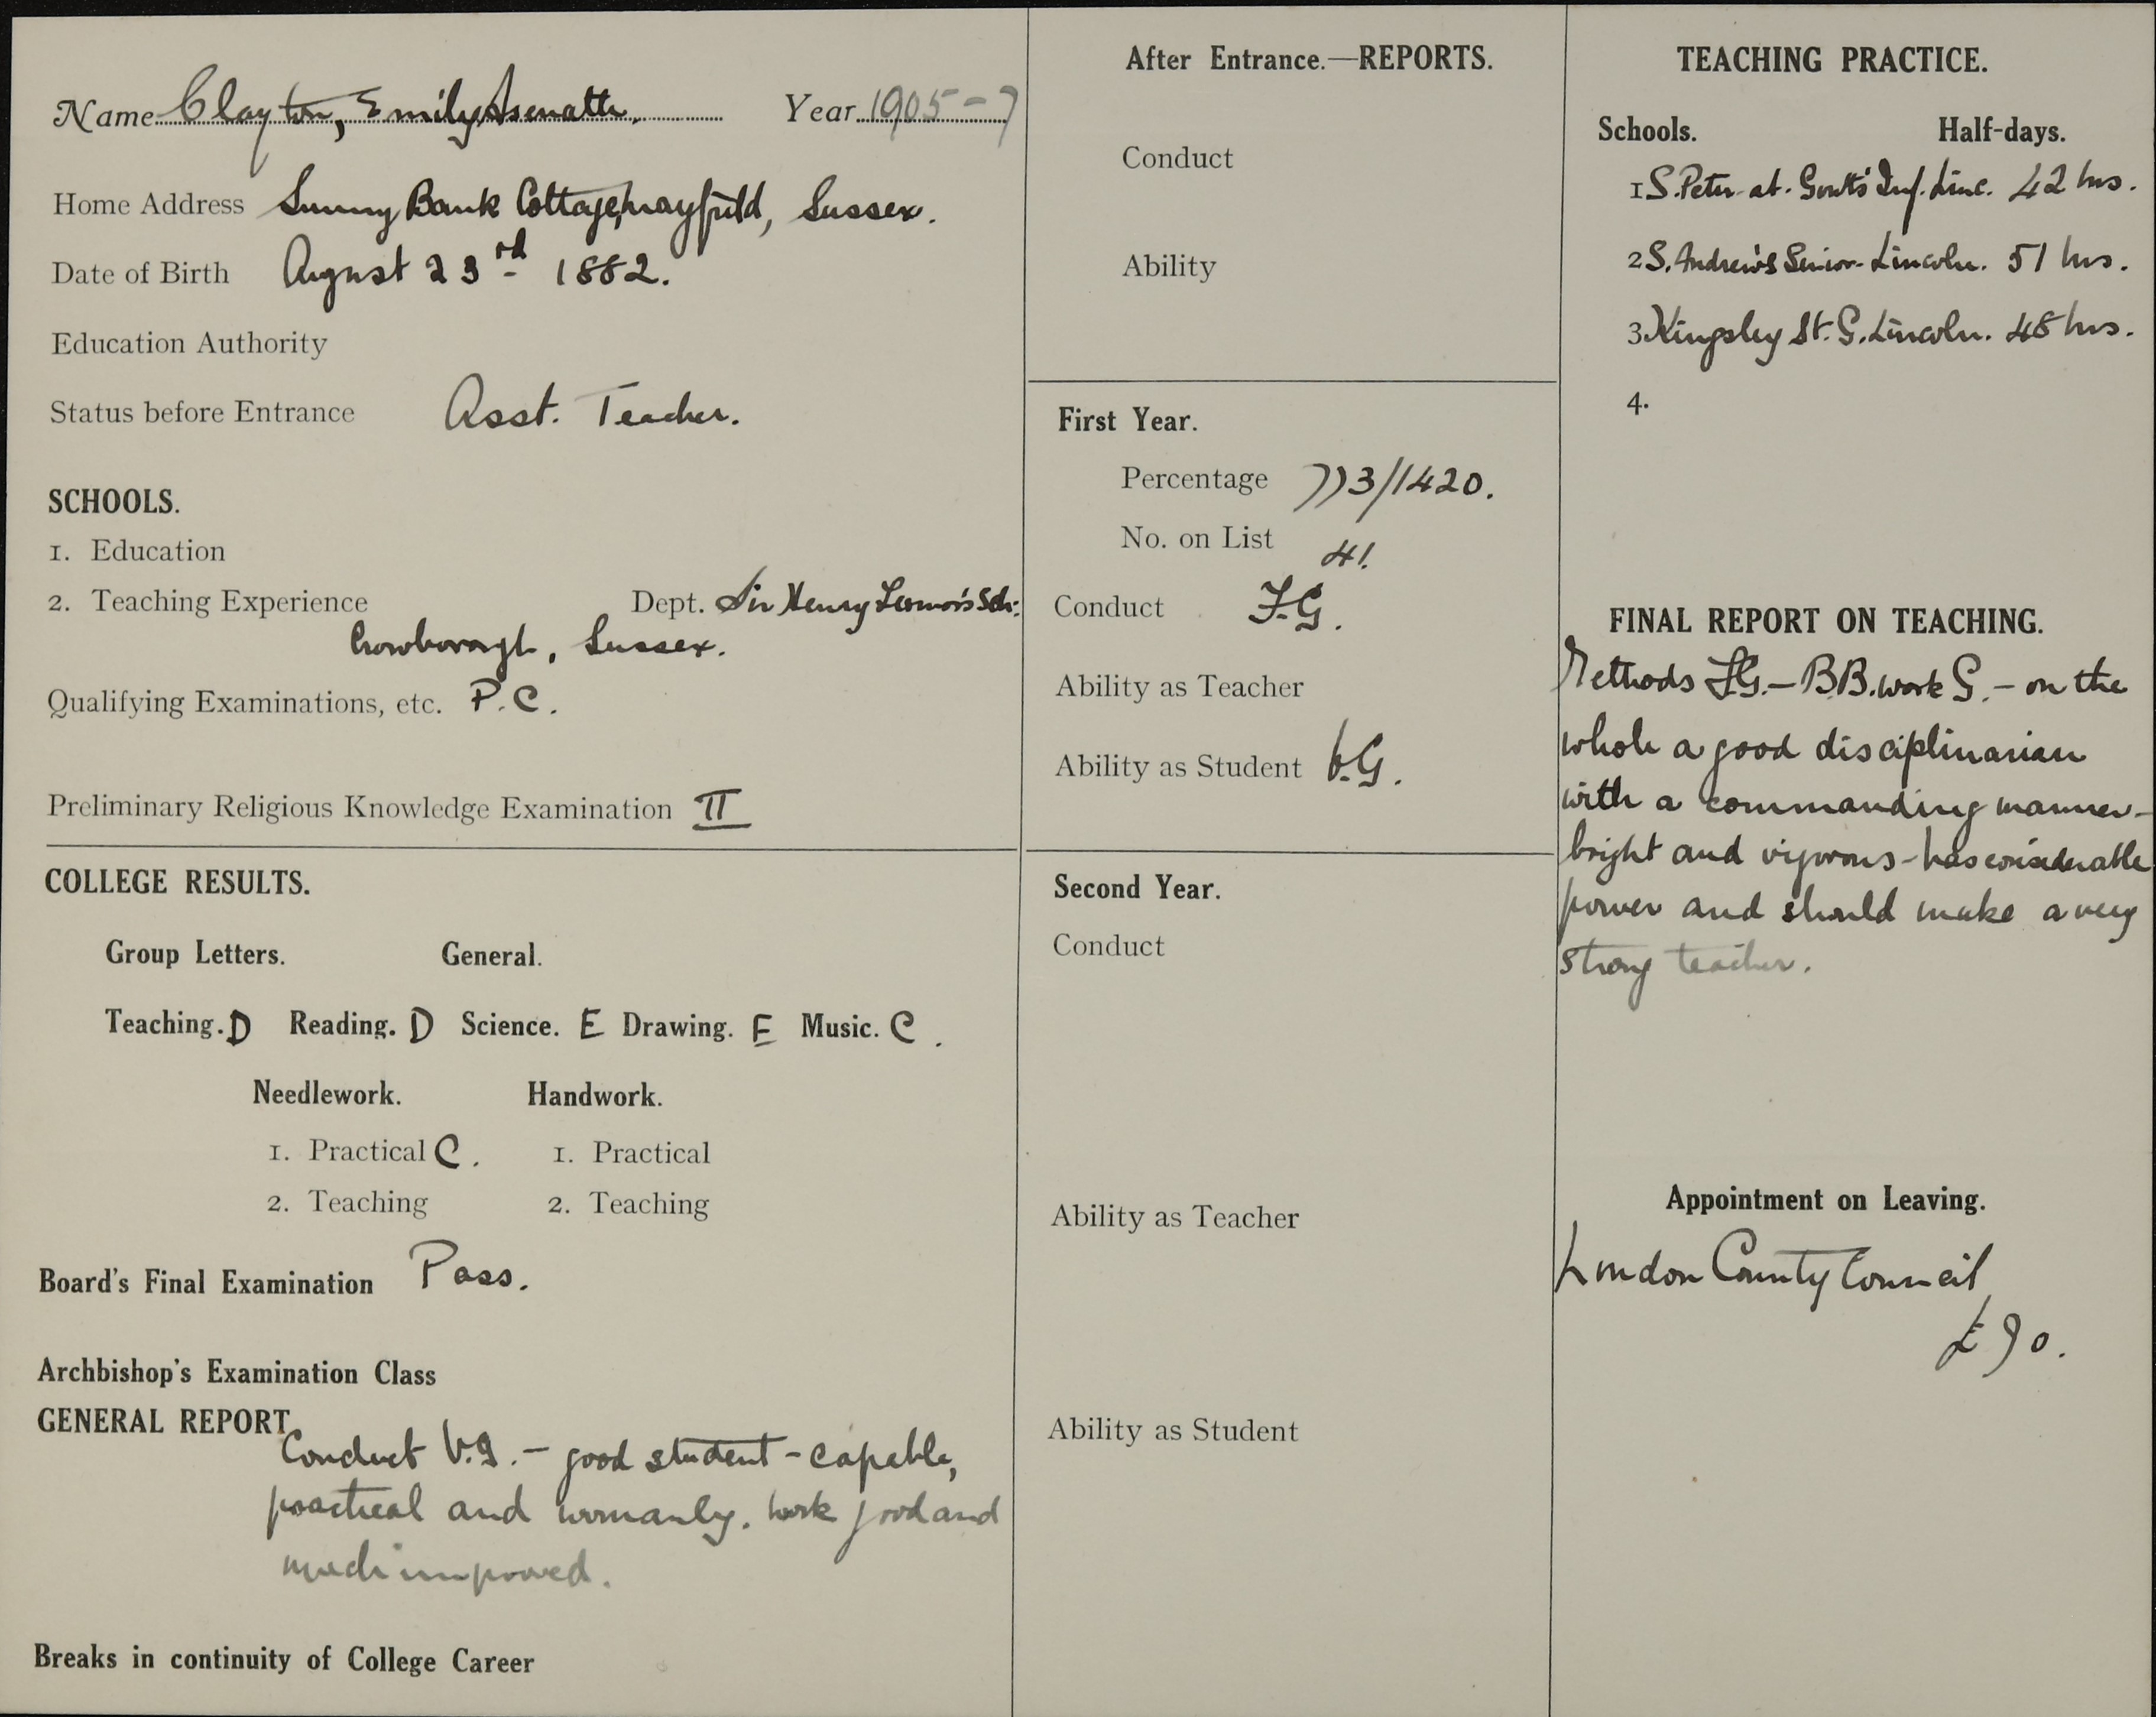 Name Clayton, Emily Asenath. Year 1905-7
Home Address Sunny Bank Cottage, Mayfield, Sussex.
Date of Birth August 23rd 1882.
Education Authority
Status before Entrance Asst. Teacher.
SCHOOLS.
1. Education
2. Teaching Experience Dept. Sir Henry Fermor's Sch:
Crowborough, Sussex.
Qualifying Examinations, etc. P.C.
Preliminary Religious Knowledge Examination II
COLLEGE RESULTS.
Group Letters. General.
Teaching. D Reading. D Science. E Drawing. E Music. C.
Needlework. Handwork.
1. Practical C. 1. Practical
2. Teaching 2. Teaching
Board's Final Examination Pass.
Archbishop's Examination Class
GENERAL REPORT
Conduct V.G. - good student - capable,
practical and womanly. Work good and
much improved.
Breaks in continuity of College Career
After Entrance.—REPORTS.
Conduct
Ability
First Year.
Percentage 773/1420.
No. on List 41.
Conduct F.G.
Ability as Teacher
Ability as Student V.G.
Second Year.
Conduct
Ability as Teacher
Ability as Student
TEACHING PRACTICE.
Schools. Half-days.
1 S. Peter-at-Gowts' Inf. Linc. 42 hrs.
2 S. Andrew's Senior- Lincoln. 51 hrs.
3 Kingsley St. G. Lincoln. 48 hrs.
4.
FINAL REPORT ON TEACHING.
Methods F.G. - B.B. work G. - on the
whole a good disciplinarian
with a commanding manner -
bright and vigorous - has considerable
power and should make a very
strong teacher.
Appointment on Leaving.
London County Council
£90.